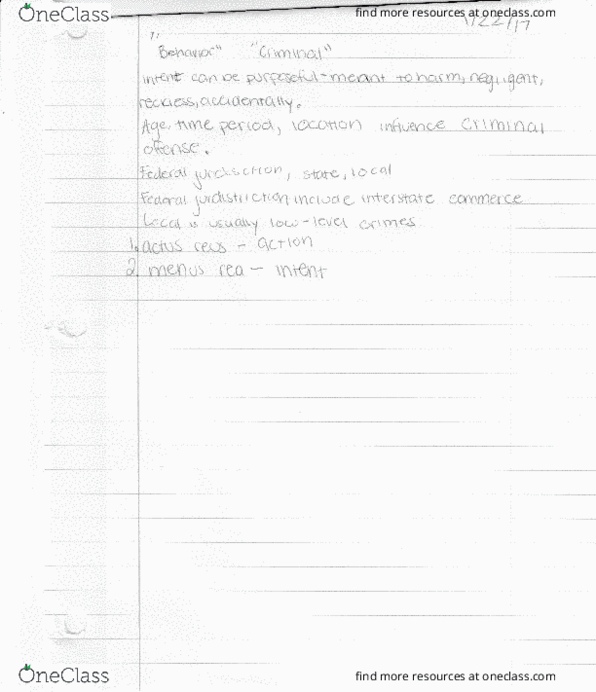 OneClass
find more resources at oneclass.com
/22/17
"Behavior" "Criminal"
intent can be purposeful-meant to harm, negligent,
reckless, accidentally.
Age, time period, location influence criminal
offense.
Federal jurdisction, state, local
Federal jurdistriction include interstate commerce
Local is usually low-level crimes
1. actus reus - action
2. menus rea - intent
OneClass
find more resources at oneclass.com